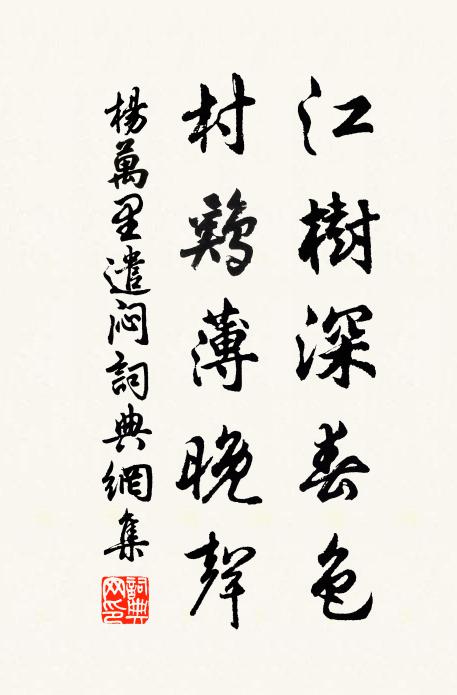 江樹深春色
村鷄薄晚聲
楊萬里遣悶詞典網集
詞典网印